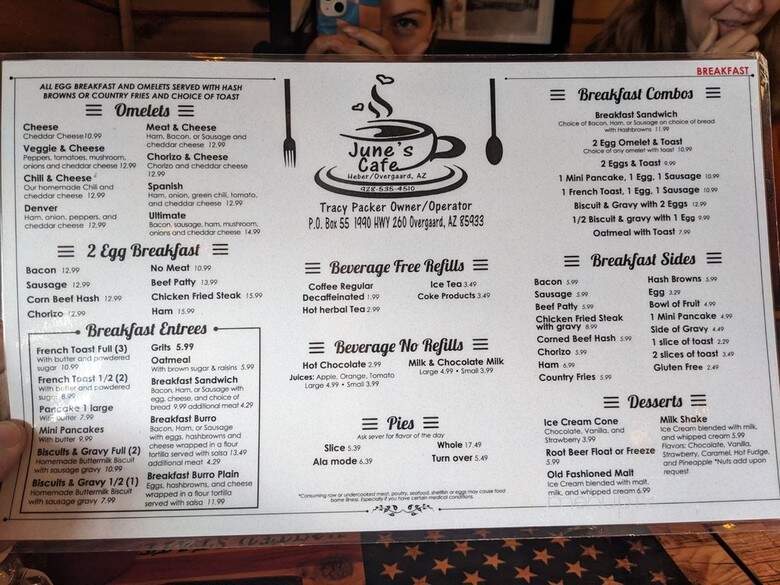 BREAKFAST
ALL EGG BREAKFAST AND OMELETS SERVED WITH HASH
BROWNS OR COUNTRY FRIES AND CHOICE OF TOAST
Omelets
Cheese
Cheddar Cheese 10.99
Veggie & Cheese
Peppers, tomatoes, mushroom,
onions and cheddar cheese 12.99
Chili & Cheese
Our homemade Chili and
cheddar cheese 12.99
Denver
Ham, onion, peppers, and
cheddar cheese 12.99
Meat & Cheese
Ham, Bacon, or Sausage and
cheddar cheese 12.99
Chorizo & Cheese
Chorizo and cheddar cheese
12.99
Spanish
Ham, onion, green chili, tomato,
and cheddar cheese 12.99
Ultimate
Bacon, sausage, ham, mushroom,
onions and cheddar cheese 14.99
2 Egg Breakfast
Bacon 12.99
Sausage 12.99
Corn Beef Hash 12.99
Chorizo 12.99
No Meat 10.99
Beef Patty 13.99
Chicken Fried Steak 15.99
Ham 15.99
Breakfast Entrees
French Toast Full (3)
With butter and powdered
sugar 10.99
French Toast 1/2 (2)
With butter and powdered
sugar 8.99
Pancake 1 large
With butter 7.99
Mini Pancakes
With butter 9.99
Biscuits & Gravy Full (2)
Homemade Buttermilk Biscuit
with sausage gravy 10.99
Biscuits & Gravy 1/2 (1)
Homemade Buttermilk Biscuit
with sausage gravy 7.99
Grits 5.99
Oatmeal
With brown sugar & raisins 5.99
Breakfast Sandwich
Bacon, Ham, or Sausage with
egg, cheese, and choice of
bread 9.99 additional meat 4.29
Breakfast Burro
Bacon, Ham, or Sausage
with eggs, hashbrowns and
cheese wrapped in a flour
tortilla served with salsa 13.49
additional meat 4.29
Breakfast Burro Plain
Eggs, hashbrowns, and cheese
wrapped in a flour tortilla
served with salsa 11.99
June's
Cafe
Heber/Overgaard, AZ
928-535-4510
Tracy Packer Owner/Operator
P.O. Box 55 1990 HWY 260 Overgaard, AZ 85933
Beverage Free Refills
Coffee Regular
Decaffeinated 1.99
Hot herbal Tea 2.99
Ice Tea 3.49
Coke Products 3.49
Beverage No Refills
Hot Chocolate 2.99
Juices: Apple, Orange, Tomato
Large 4.99 • Small 3.99
Milk & Chocolate Milk
Large 4.99 • Small 3.99
Pies
Ask sever for flavor of the day
Slice 5.39
Ala mode 6.39
Whole 17.49
Turn over 5.49
*Consuming raw or undercooked meat, poultry, seafood, shellfish or eggs may cause food
borne illness. Especially if you have certain medical conditions.
Breakfast Combos
Breakfast Sandwich
Choice of Bacon, Ham, or Sausage on choice of bread
with Hashbrowns 11.99
2 Egg Omelet & Toast
Choice of any omelet with toast 10.99
2 Eggs & Toast 9.99
1 Mini Pancake, 1 Egg, 1 Sausage 10.99
1 French Toast, 1 Egg, 1 Sausage 10.99
Biscuit & Gravy with 2 Eggs 12.99
1/2 Biscuit & gravy with 1 Egg 9.99
Oatmeal with Toast 7.99
Breakfast Sides
Bacon 5.99
Sausage 5.99
Beef Patty 5.99
Chicken Fried Steak
with gravy 8.99
Corned Beef Hash 5.99
Chorizo 5.99
Ham 6.99
Country Fries 5.99
Hash Browns 5.99
Egg 3.29
Bowl of Fruit 4.99
1 Mini Pancake 4.99
Side of Gravy 4.49
1 slice of toast 2.29
2 slices of toast 3.49
Gluten Free 2.49
Desserts
Ice Cream Cone
Chocolate, Vanilla, and
Strawberry 3.99
Root Beer Float or Freeze
5.99
Old Fashioned Malt
Ice Cream blended with malt,
milk, and whipped cream 6.99
Milk Shake
Ice Cream blended with milk,
and whipped cream 5.99
Flavors: Chocolate, Vanilla,
Strawberry, Caramel, Hot Fudge,
and Pineapple *Nuts add upon
request